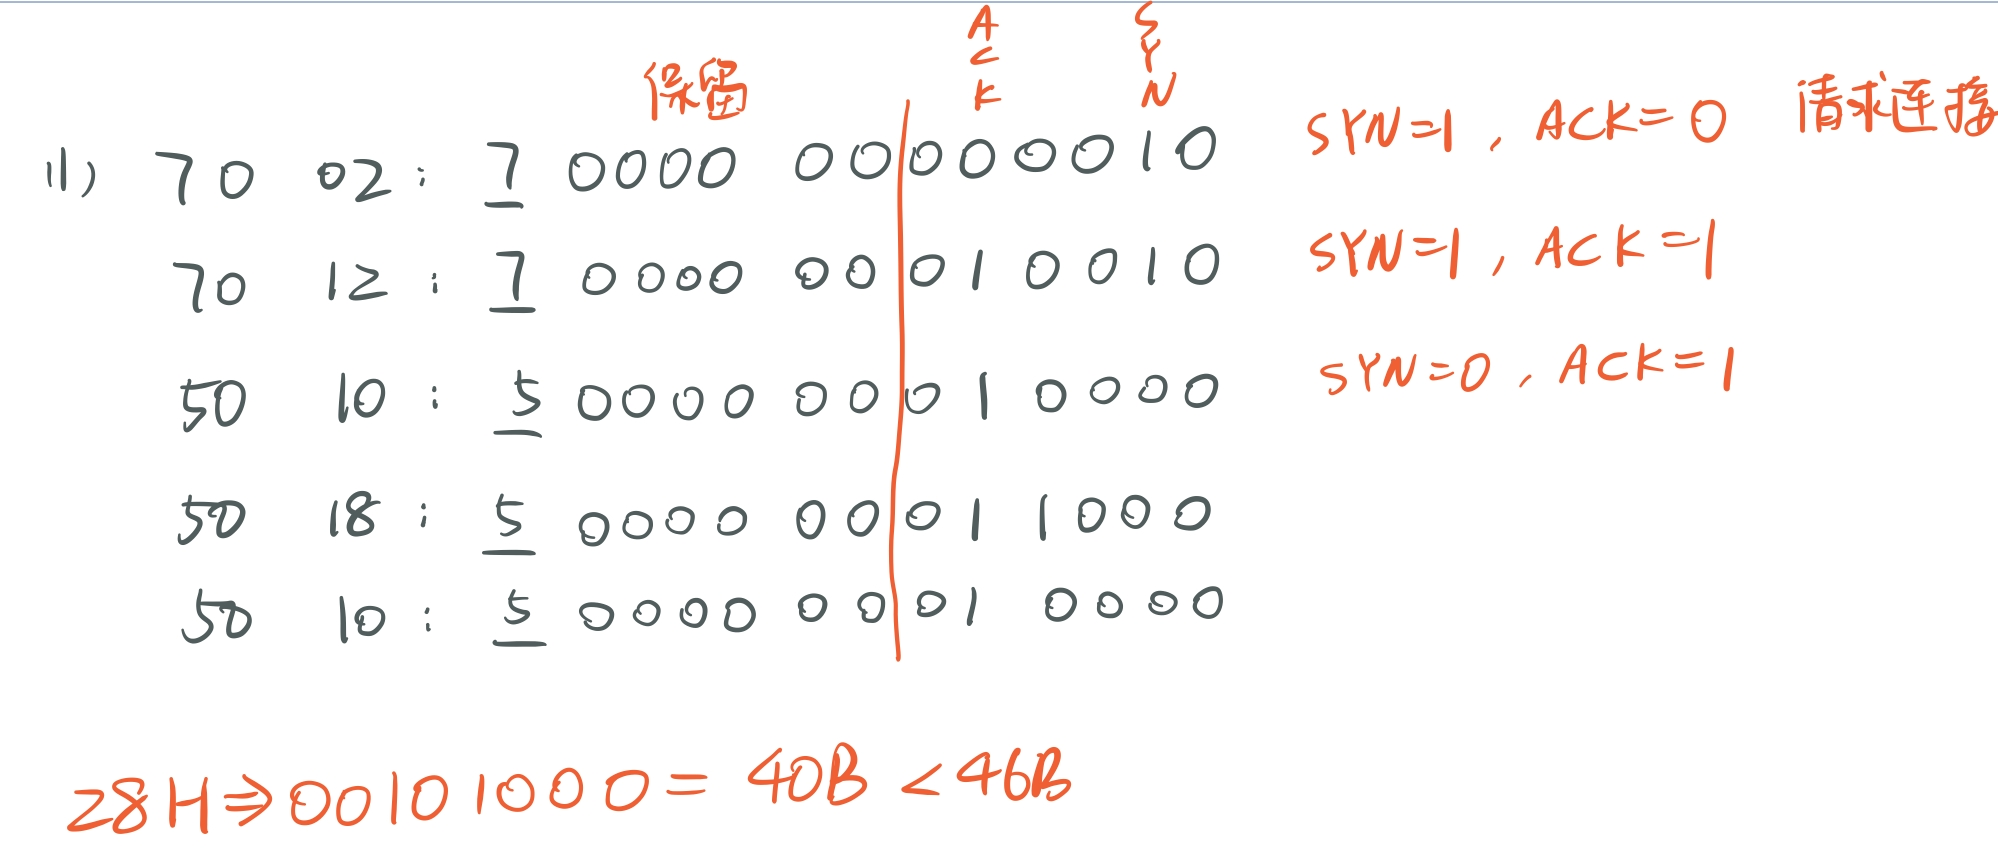 保留 ACK SYN
(1) 70 02: 7 0000 0000 0010 SYN=1, ACK=0 请求连接
70 12: 7 0000 0001 0010 SYN=1, ACK=1
50 10: 5 0000 0001 0000 SYN=0, ACK=1
50 18: 5 0000 0001 1000
50 10: 5 0000 0001 0000
28H⇒00101000=40B<46B